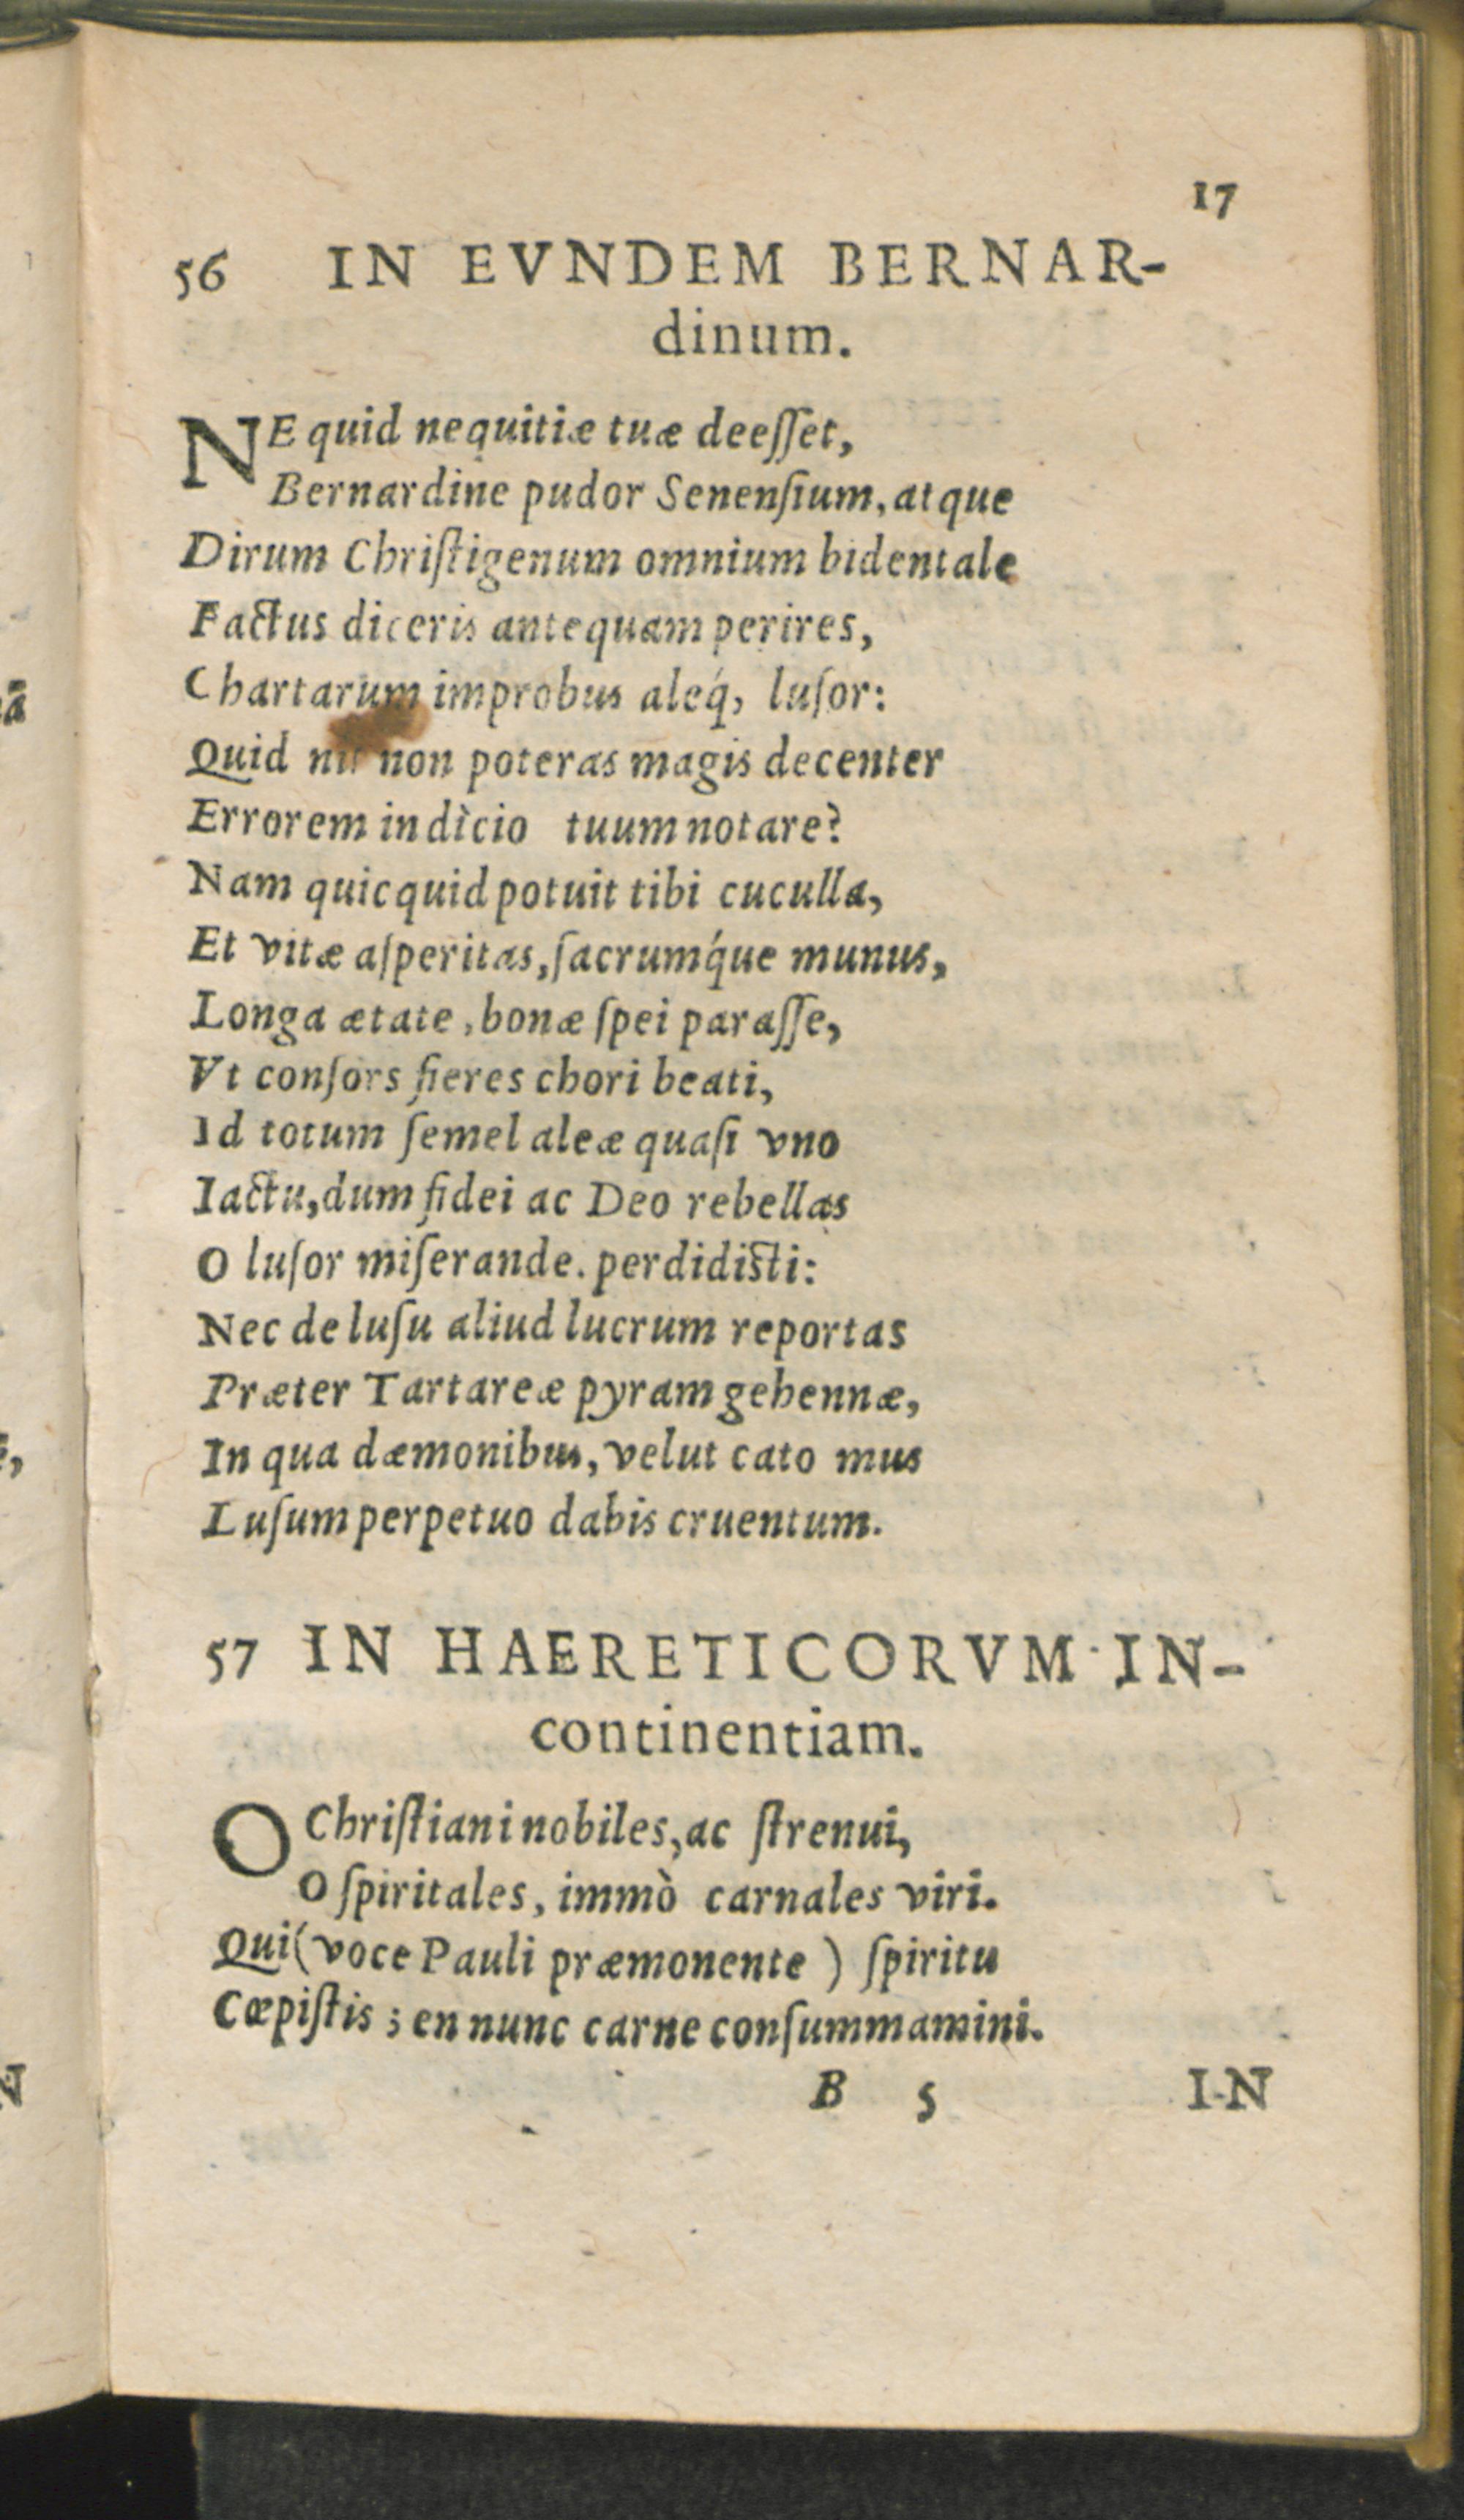 17
56 IN EVNDEM BERNAR-
dinum.
NE quid nequitiæ tuæ deeſſet,
Bernardine pudor Senenſium, atque
Dirum Chriſtigenum omnium bidentale
Factus diceris antequam perires,
Chartarum improbus aleq́, luſor:
Quid non poteras magis decenter
Errorem indìcio tuum notare?
Nam quicquid potuit tibi cuculla,
Et vitæ aſperitas, ſacrumq́ue munus,
Longa ætate, bonæ ſpei paraſſe,
Vt conſors fieres chori beati,
Id totum ſemel aleæ quaſi vno
Iactu, dum fidei ac Deo rebellas
O luſor miſerande. perdidisti:
Nec de luſu aliud lucrum reportas
Præter Tartareæ pyram gehennæ,
In qua dæmonibus, velut cato mus
Luſum perpetuo dabis cruentum.
57 IN HAERETICORVM IN-
continentiam.
O Chriſtiani nobiles, ac ſtrenui,
O ſpiritales, immò carnales viri.
Qui (voce Pauli præmonente) ſpiritu
Cœpiſtis; en nunc carne conſummamini.
B 5 IN